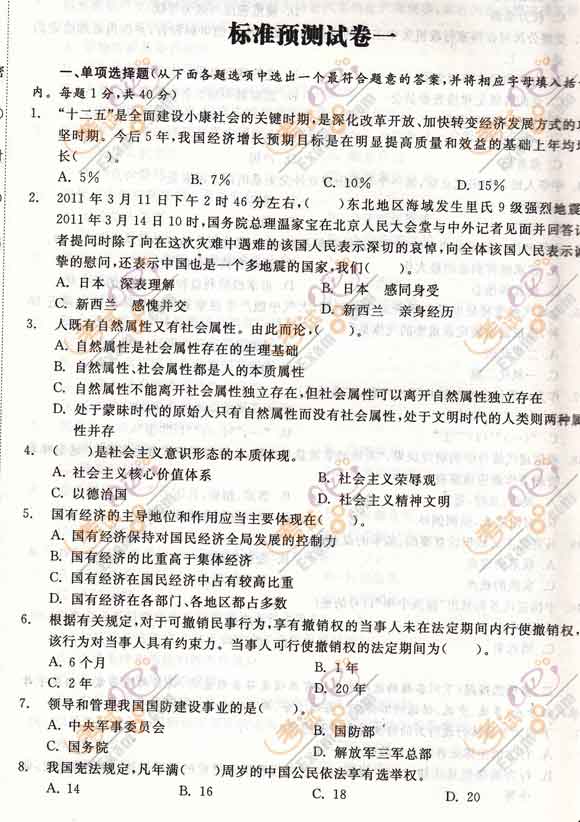 标准预测试卷一
一、单项选择题(从下面各题选项中选出一个最符合题意的答案,并将相应字母填入括
内。每题1分,共40分)
1. “十二五”是全面建设小康社会的关键时期,是深化改革开放、加快转变经济发展方式的
坚时期。今后5年,我国经济增长预期目标是在明显提高质量和效益的基础上年均
长( )。
A. 5% B. 7% C. 10% D. 15%
2. 2011年3月11日下午2时46分左右,( )东北地区海域发生里氏9级强烈地震
2011年3月14日10时,国务院总理温家宝在北京人民大会堂与中外记者见面并回答
者提问时除了向在这次灾难中遇难的该国人民表示深切的哀悼,向全体该国人民表示
挚的慰问,还表示中国也是一个多地震的国家,我们( )。
A. 日本 深表理解 B. 日本 感同身受
C. 新西兰 感愧并交 D. 新西兰 亲身经历
3. 人既有自然属性又有社会属性。由此而论,( )。
A. 自然属性是社会属性存在的生理基础
B. 自然属性、社会属性都是人的本质属性
C. 自然属性不能离开社会属性独立存在,但社会属性可以离开自然属性独立存在
D. 处于蒙昧时代的原始人只有自然属性而没有社会属性,处于文明时代的人类则两种属
性并存
4. ( )是社会主义意识形态的本质体现。
A. 社会主义核心价值体系 B. 社会主义荣辱观
C. 以德治国 D. 社会主义精神文明
5. 国有经济的主导地位和作用应当主要体现在( )。
A. 国有经济保持对国民经济全局发展的控制力
B. 国有经济的比重高于集体经济
C. 国有经济在国民经济中占有较高比重
D. 国有经济在各部门、各地区都占多数
6. 根据有关规定,对于可撤销民事行为,享有撤销权的当事人未在法定期间内行使撤销权,
该行为对当事人具有约束力。当事人可行使撤销权的法定期间为( )。
A. 6个月 B. 1年
C. 2年 D. 20年
7. 领导和管理我国国防建设事业的是( )。
A. 中央军事委员会 B. 国防部
C. 国务院 D. 解放军三军总部
8. 我国宪法规定,凡年满( )周岁的中国公民依法享有选举权。
A. 14 B. 16 C. 18 D. 20